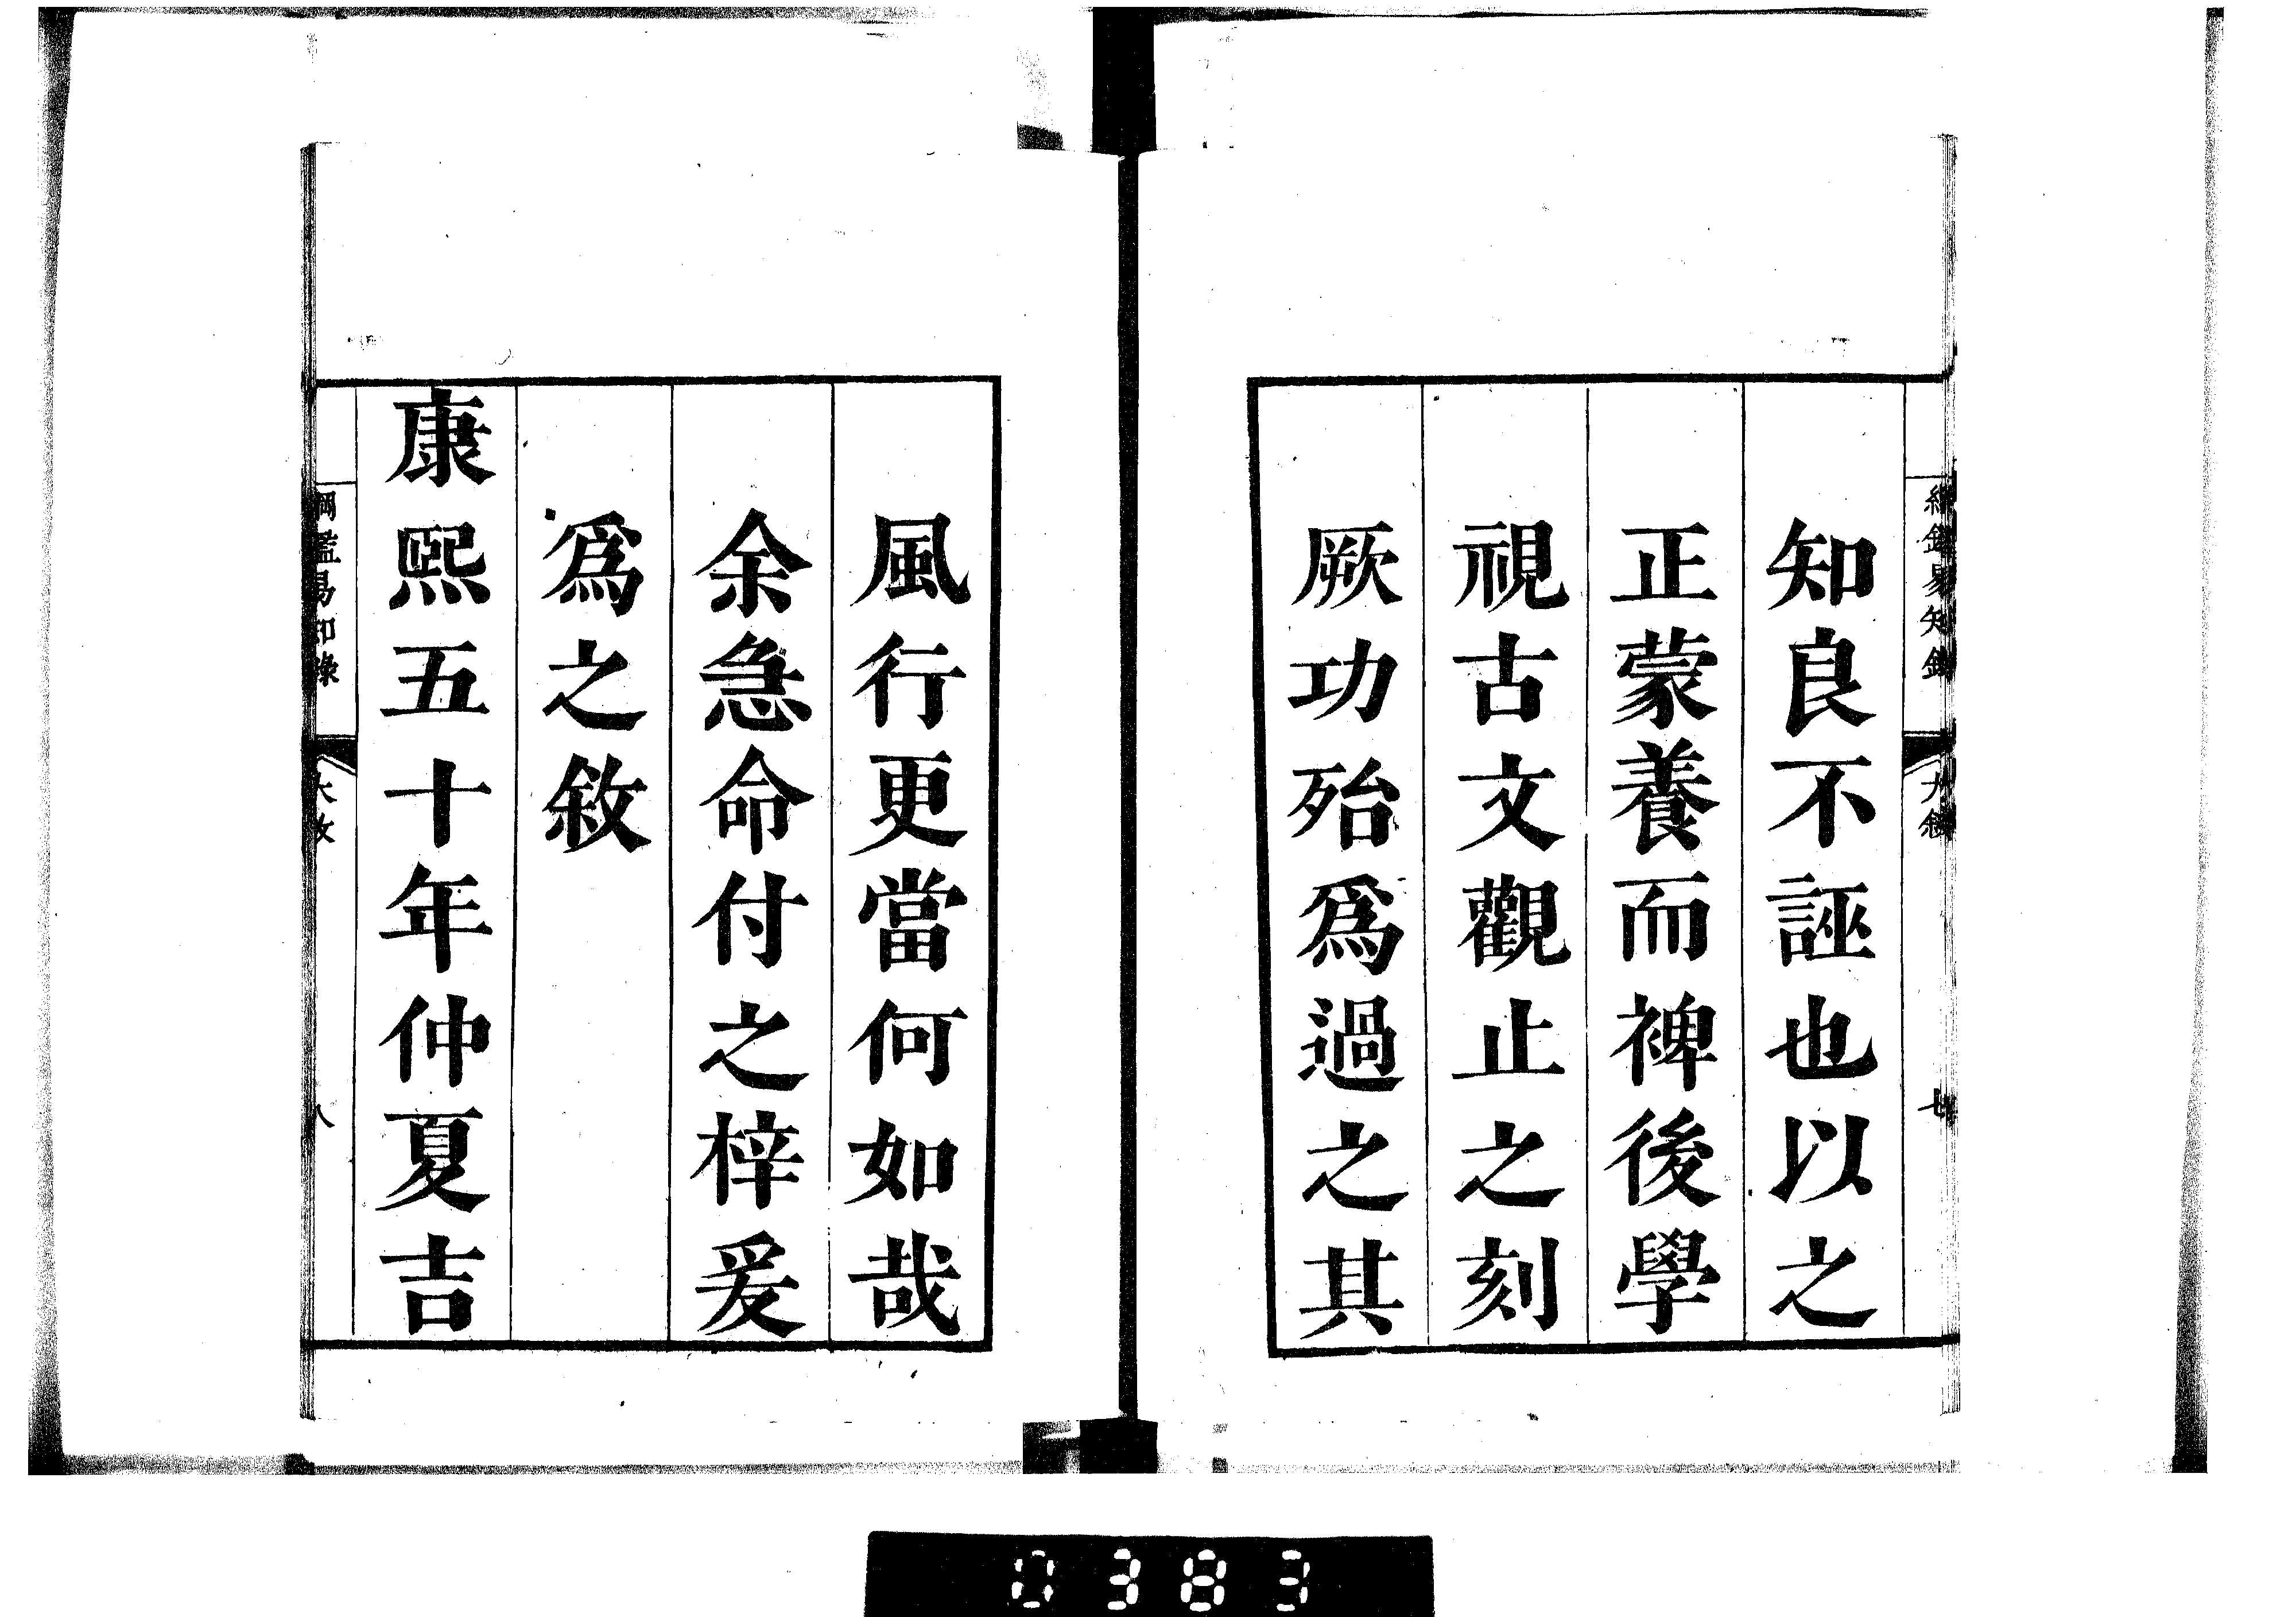 綱鑑易知錄
大敘
七
知良不誣也以之
正蒙養而裨後學
視古文觀止之刻
厥功殆爲過之其
風行更當何如哉
余急命付之梓爰
爲之敘
康熙五十年仲夏吉
綱鑑易知錄
大敘
八
0383